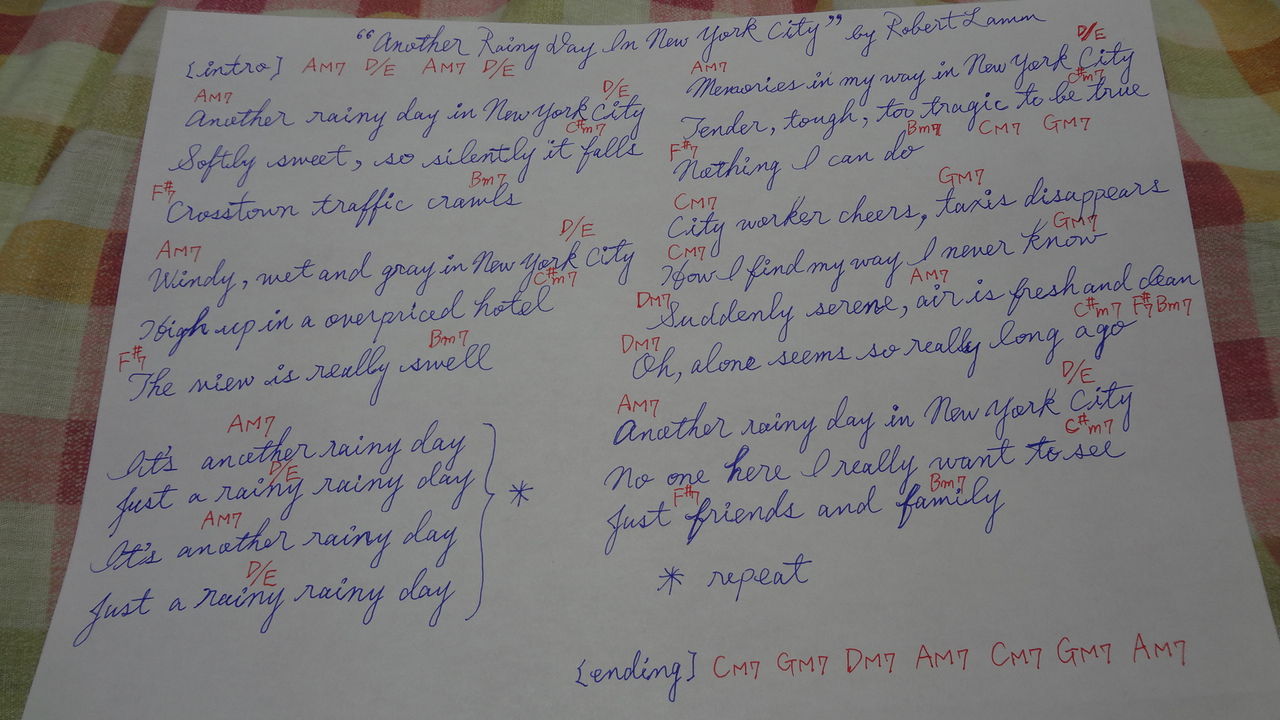 "Another Rainy Day In New York City" by Robert Lamm
[intro] AM7 D/E AM7 D/E
AM7 D/E
Another rainy day in New York City
C#m7
Softly sweet, so silently it falls
F#7 Bm7
Crosstown traffic crawls
AM7 D/E
Windy, wet and gray in New York City
C#m7
High up in a overpriced hotel
F#7 Bm7
The view is really swell
AM7
It's another rainy day
D/E
Just a rainy rainy day
AM7
It's another rainy day
D/E
Just a rainy rainy day
*
AM7 D/E
Memories in my way in New York City
C#m7
Tender, tough, too tragic to be true
F#7 Bm7 CM7 GM7
Nothing I can do
CM7 GM7
City worker cheers, taxis disappears
CM7 GM7
How I find my way I never know
DM7 AM7
Suddenly serene, air is fresh and clean
DM7 C#m7 F#7 Bm7
Oh, alone seems so really long ago
AM7 D/E
Another rainy day in New York City
C#m7
No one here I really want to see
F#7 Bm7
Just friends and family
* repeat
[ending] CM7 GM7 DM7 AM7 CM7 GM7 AM7